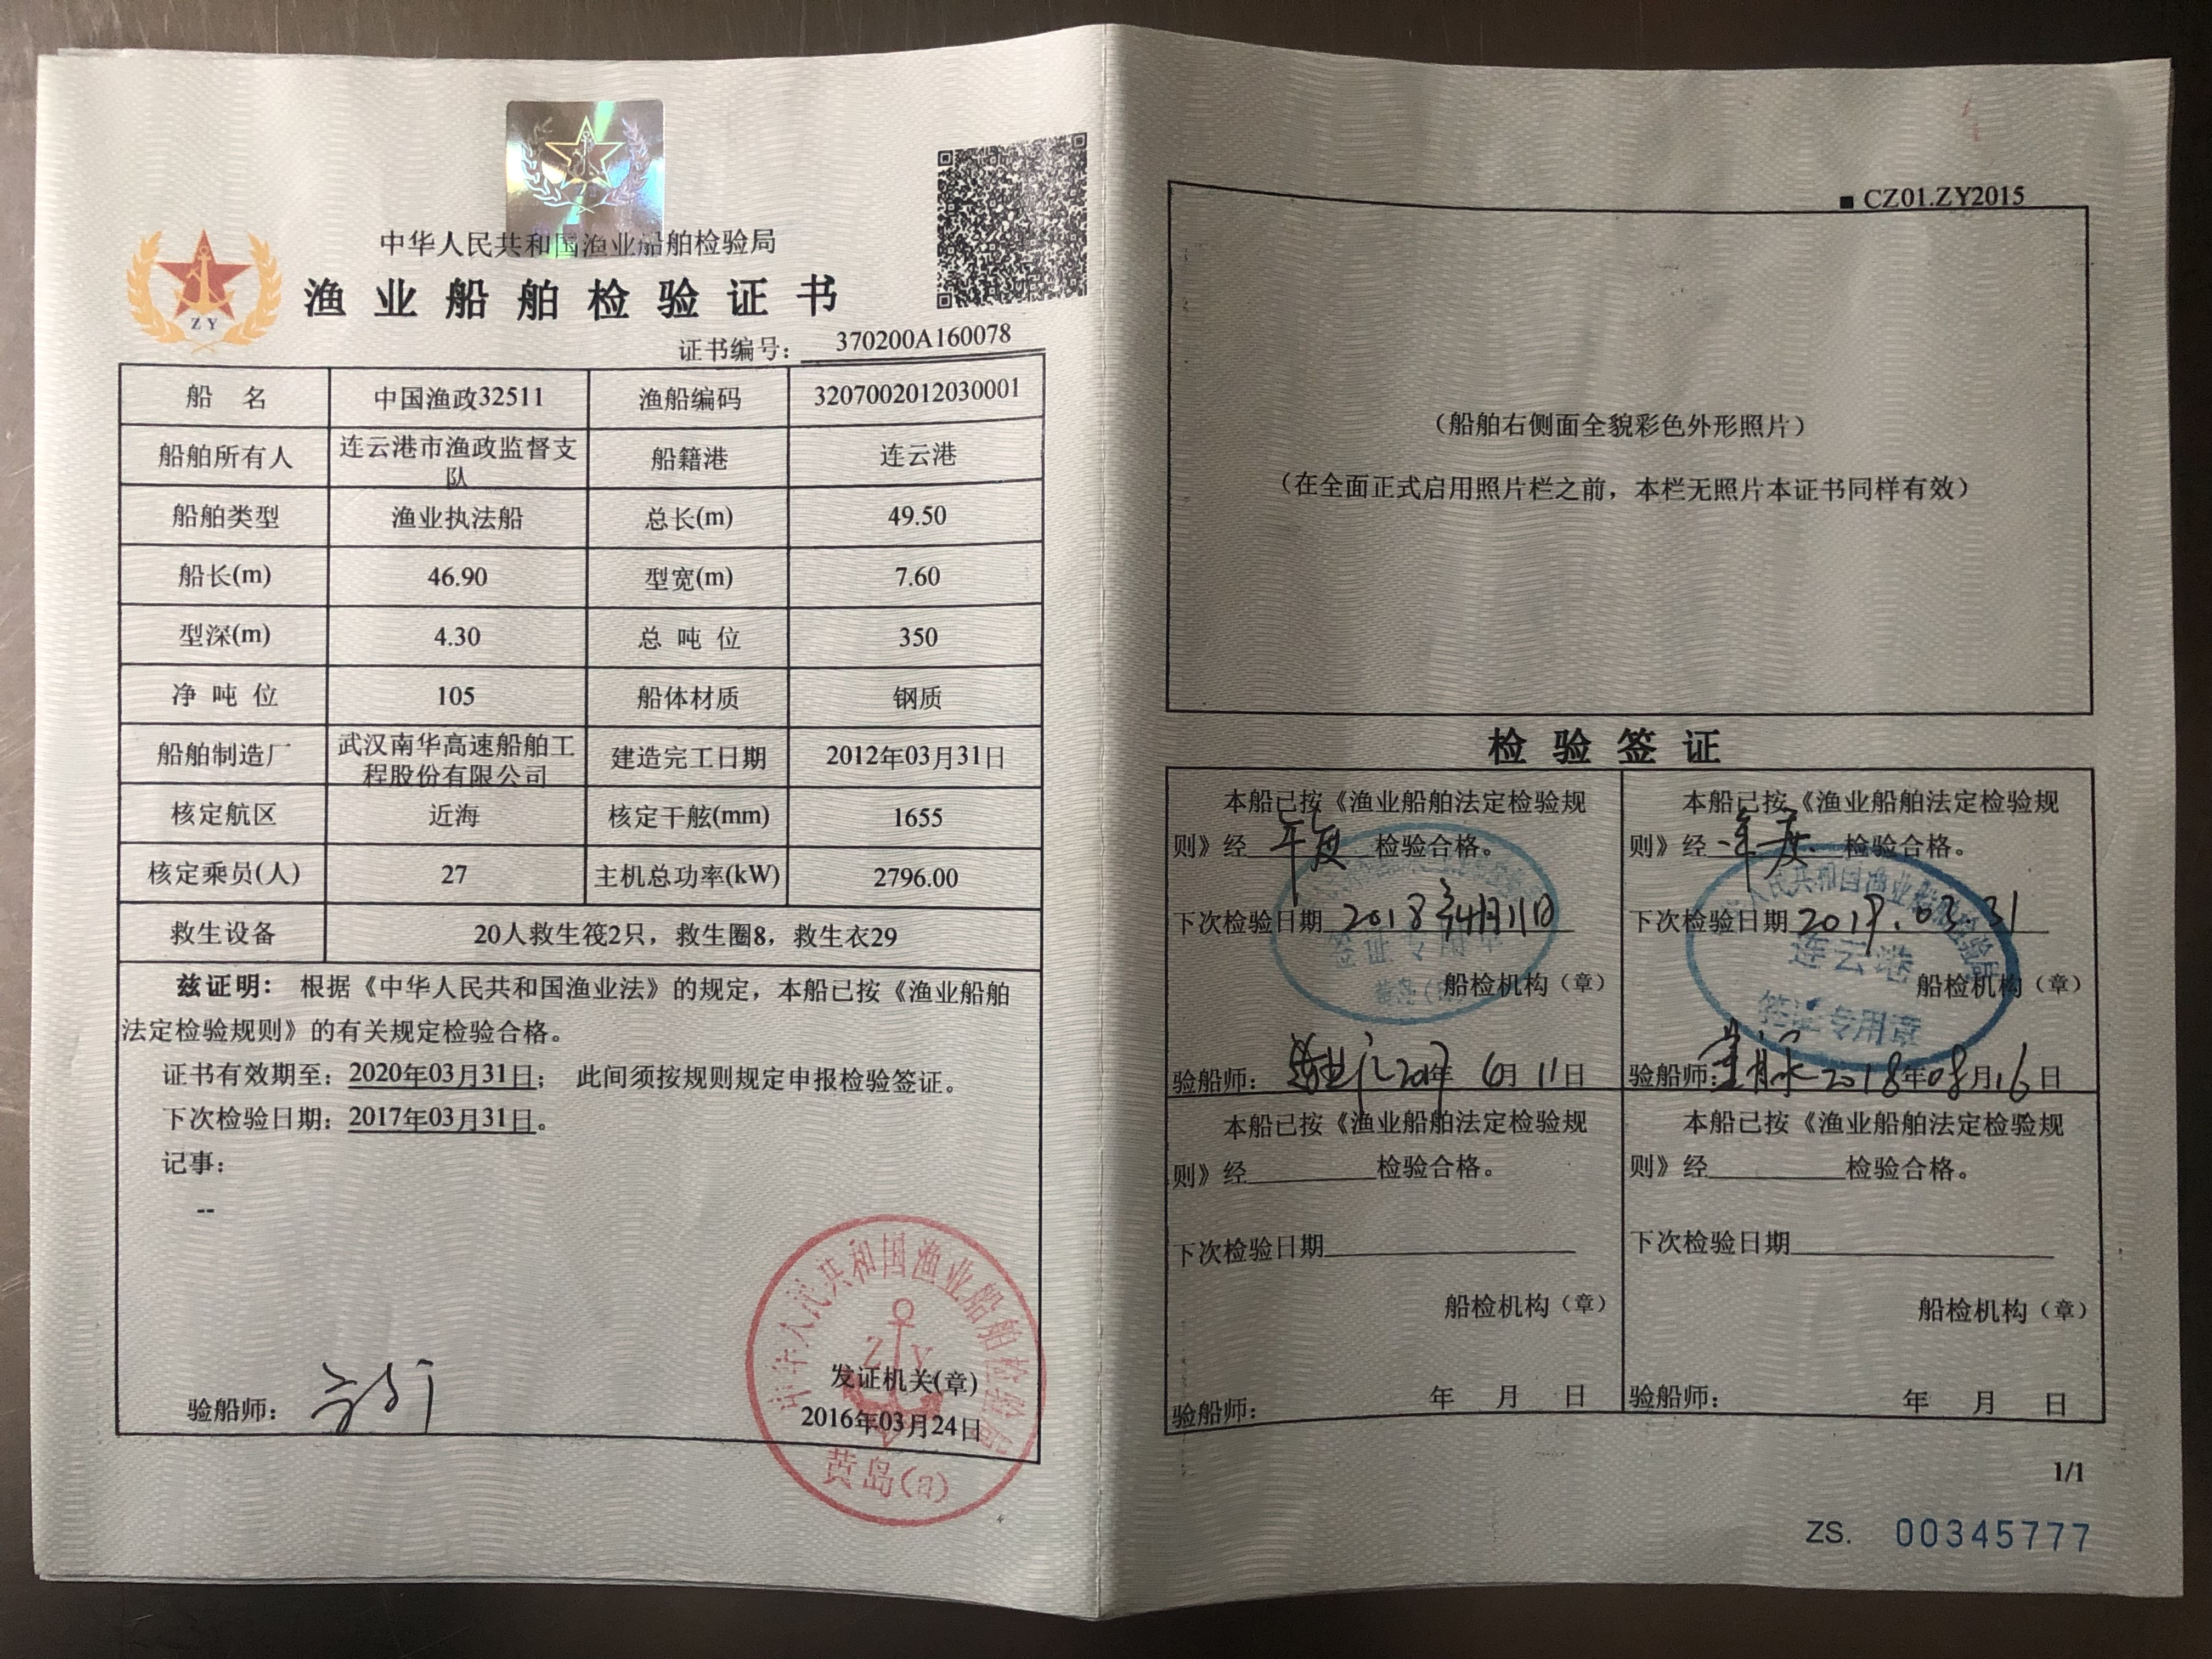 中华人民共和国渔业船舶检验局
渔业船舶检验证书
ZY
证书编号： 370200A160078
船 名 中国渔政32511 渔船编码 3207002012030001
船舶所有人 连云港市渔政监督支队 船籍港 连云港
船舶类型 渔业执法船 总长(m) 49.50
船长(m) 46.90 型宽(m) 7.60
型深(m) 4.30 总 吨 位 350
净 吨 位 105 船体材质 钢质
船舶制造厂 武汉南华高速船舶工程股份有限公司 建造完工日期 2012年03月31日
核定航区 近海 核定干舷(mm) 1655
核定乘员(人) 27 主机总功率(kW) 2796.00
救生设备 20人救生筏2只，救生圈8，救生衣29
兹证明： 根据《中华人民共和国渔业法》的规定，本船已按《渔业船舶
法定检验规则》的有关规定检验合格。
证书有效期至：2020年03月31日； 此间须按规则规定申报检验签证。
下次检验日期：2017年03月31日。
记事：
--
中华人民共和国渔业船舶检验局
ZY
发证机关(章)
验船师：
2016年03月24日
黄岛(a)
■ CZ01.ZY2015
（船舶右侧面全貌彩色外形照片）
（在全面正式启用照片栏之前，本栏无照片本证书同样有效）
检验签证
本船已按《渔业船舶法定检验规
则》经 年度 检验合格。
下次检验日期 2018年4月11日
签证专用章
船检机构（章）
验船师： 2017年 6月 11日
本船已按《渔业船舶法定检验规
则》经 年度 检验合格。
中华人民共和国渔业船舶检验局
下次检验日期 2019.03.31
连云港
船检机构（章）
签证专用章
验船师： 2018年08月16日
本船已按《渔业船舶法定检验规
则》经 检验合格。
下次检验日期
船检机构（章）
验船师： 年 月 日
本船已按《渔业船舶法定检验规
则》经 检验合格。
下次检验日期
船检机构（章）
验船师： 年 月 日
1/1
ZS. 00345777